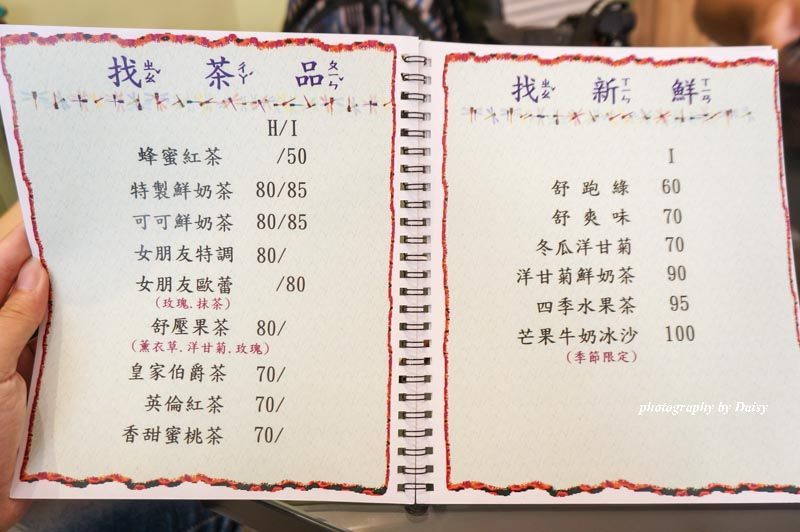 找ㄓㄠˇ 茶ㄔㄚˊ 品ㄆㄧㄣˇ
H/I
蜂蜜紅茶 /50
特製鮮奶茶 80/85
可可鮮奶茶 80/85
女朋友特調 80/
女朋友歐蕾 /80
(玫瑰.抹茶)
舒壓果茶 80/
(薰衣草.洋甘菊.玫瑰)
皇家伯爵茶 70/
英倫紅茶 70/
香甜蜜桃茶 70/
找ㄓㄠˇ 新ㄒㄧㄣ 鮮ㄒㄧㄢ
I
舒跑綠 60
舒爽味 70
冬瓜洋甘菊 70
洋甘菊鮮奶茶 90
四季水果茶 95
芒果牛奶冰沙 100
(季節限定)
photography by Daisy